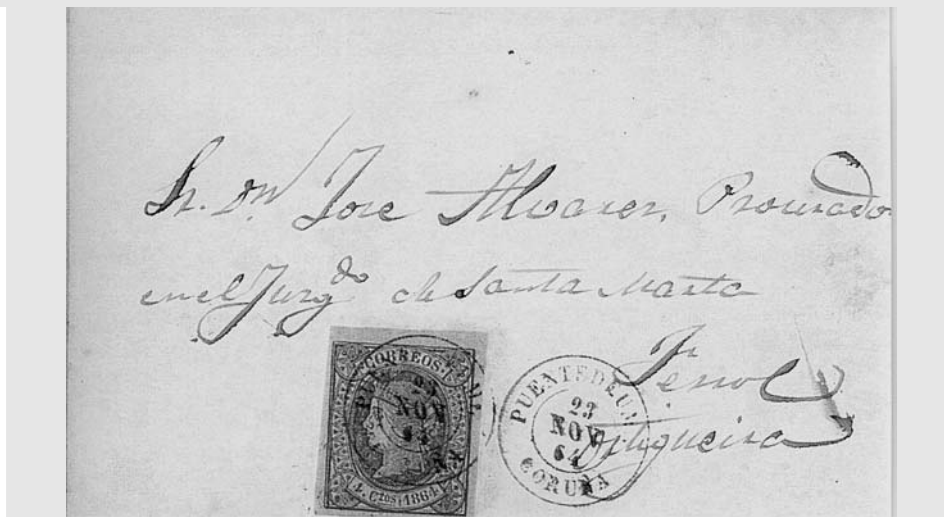 Sr. Dn Jose Alvarez, Procurador
en el Juzgdo de Santa Marta
Ferrol
Ortigueira
CORREOS
23
NOV
64
4 Ctos. 1864
PUENTEDEUM
23
NOV
64
CORUÑA